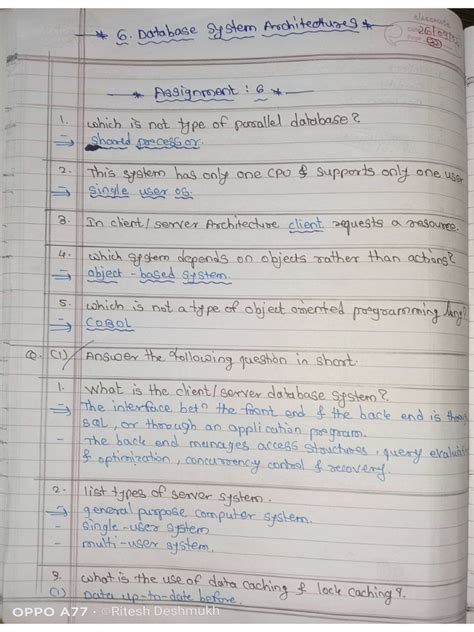 classmate
26/09/
* 6. Database System Architectures *
* Assignment : 6 *
1. which is not type of parallel database?
⇒ shared processor.
2. This system has only one CPU & supports only one user
⇒ single user os.
3. In client/server Architecture client requests a resource.
4. which system depends on objects rather than actions?
⇒ object-based system.
5. which is not a type of object oriented programming lang?
⇒ COBOL
Q. (1) Answer the following question in short.
1. What is the client/server database system?
⇒ The interface betn the front end & the back end is through
SQL, or through an application program.
- The back end manages access structures, query evaluation
& optimization, concurrency control & recovery.
2. list types of server system.
⇒ general purpose computer system.
- single-user system
- multi-user system.
3. what is the use of data caching & lock caching?
(1) Data up-to-date before.
OPPO A77 · ©Ritesh Deshmukh